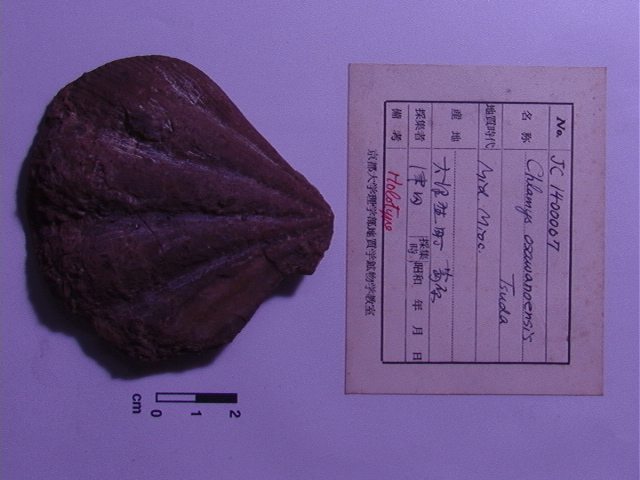 No. JC 1400007
名称 Chlamys osawanoensis
Tsuda
地質時代 Mid. Mioc.
産地 大沢野町
採集者 津田 採集時 昭和 年 月 日
備考 Holotype
京都大学理学部地質学鉱物学教室
0 1 2
cm